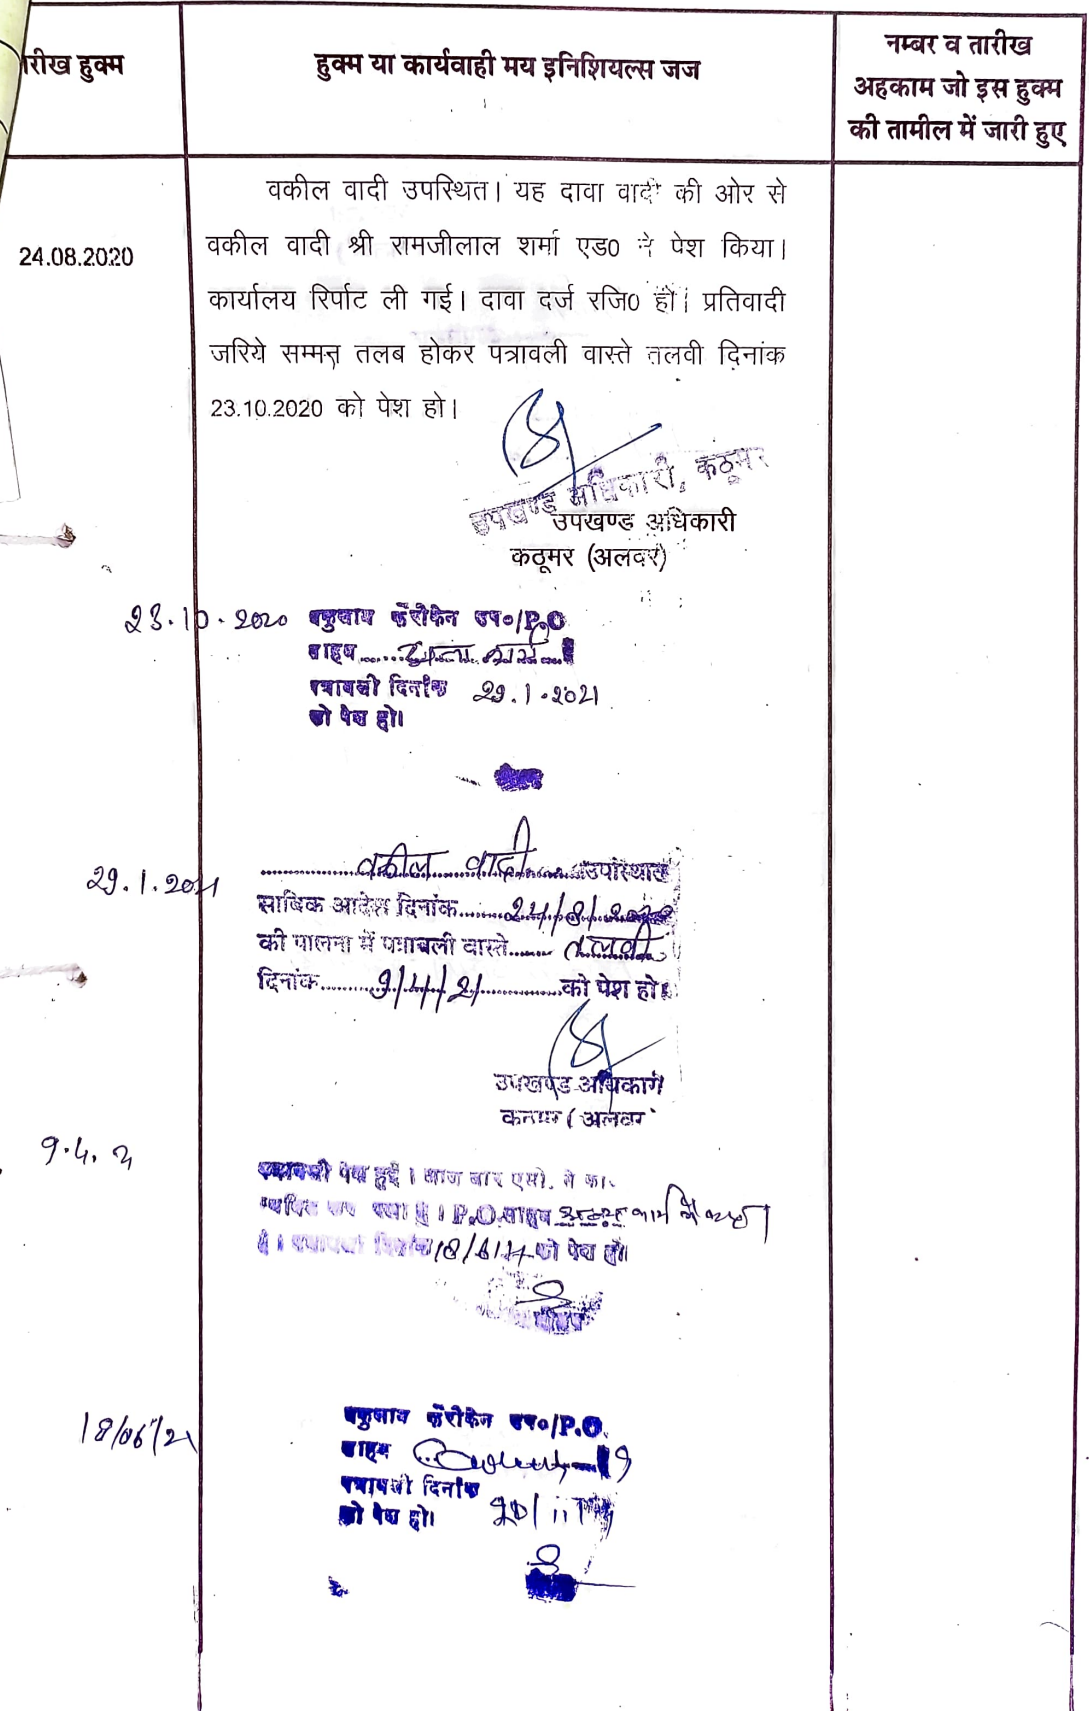 रीख हुक्म
हुक्म या कार्यवाही मय इनिशियल्स जज
नम्बर व तारीख
अहकाम जो इस हुक्म
की तामील में जारी हुए
24.08.2020
वकील वादी उपस्थित। यह दावा वादी की ओर से
वकील वादी श्री रामजीलाल शर्मा एड0 ने पेश किया।
कार्यालय रिर्पाट ली गई। दावा दर्ज रजि0 हों। प्रतिवादी
जरिये सम्मन तलब होकर पत्रावली वास्ते तलवी दिनांक
23.10.2020 को पेश हो।
उपखण्ड अधिकारी, कठूमर
उपखण्ड अधिकारी
कठूमर (अलवर)
23.10.2020
P.O
साहब
पत्रावली दिनांक 29.1.2021
को पेश हो।
29.1.2021
वकील वादी उपस्थित
साबिक आदेश दिनांक 24/8/2020
की पालना में पत्रावली वास्ते तलवी
दिनांक 9/4/21 को पेश हो।
उपखण्ड अधिकारी
कठूमर (अलवर
9.4.21
पत्रावली पेश हुई। आज बार एसो. ने का.
P.O. साहब
को पेश हो।
18/06/21
P.O.
साहब
पत्रावली दिनांक
को पेश हो।